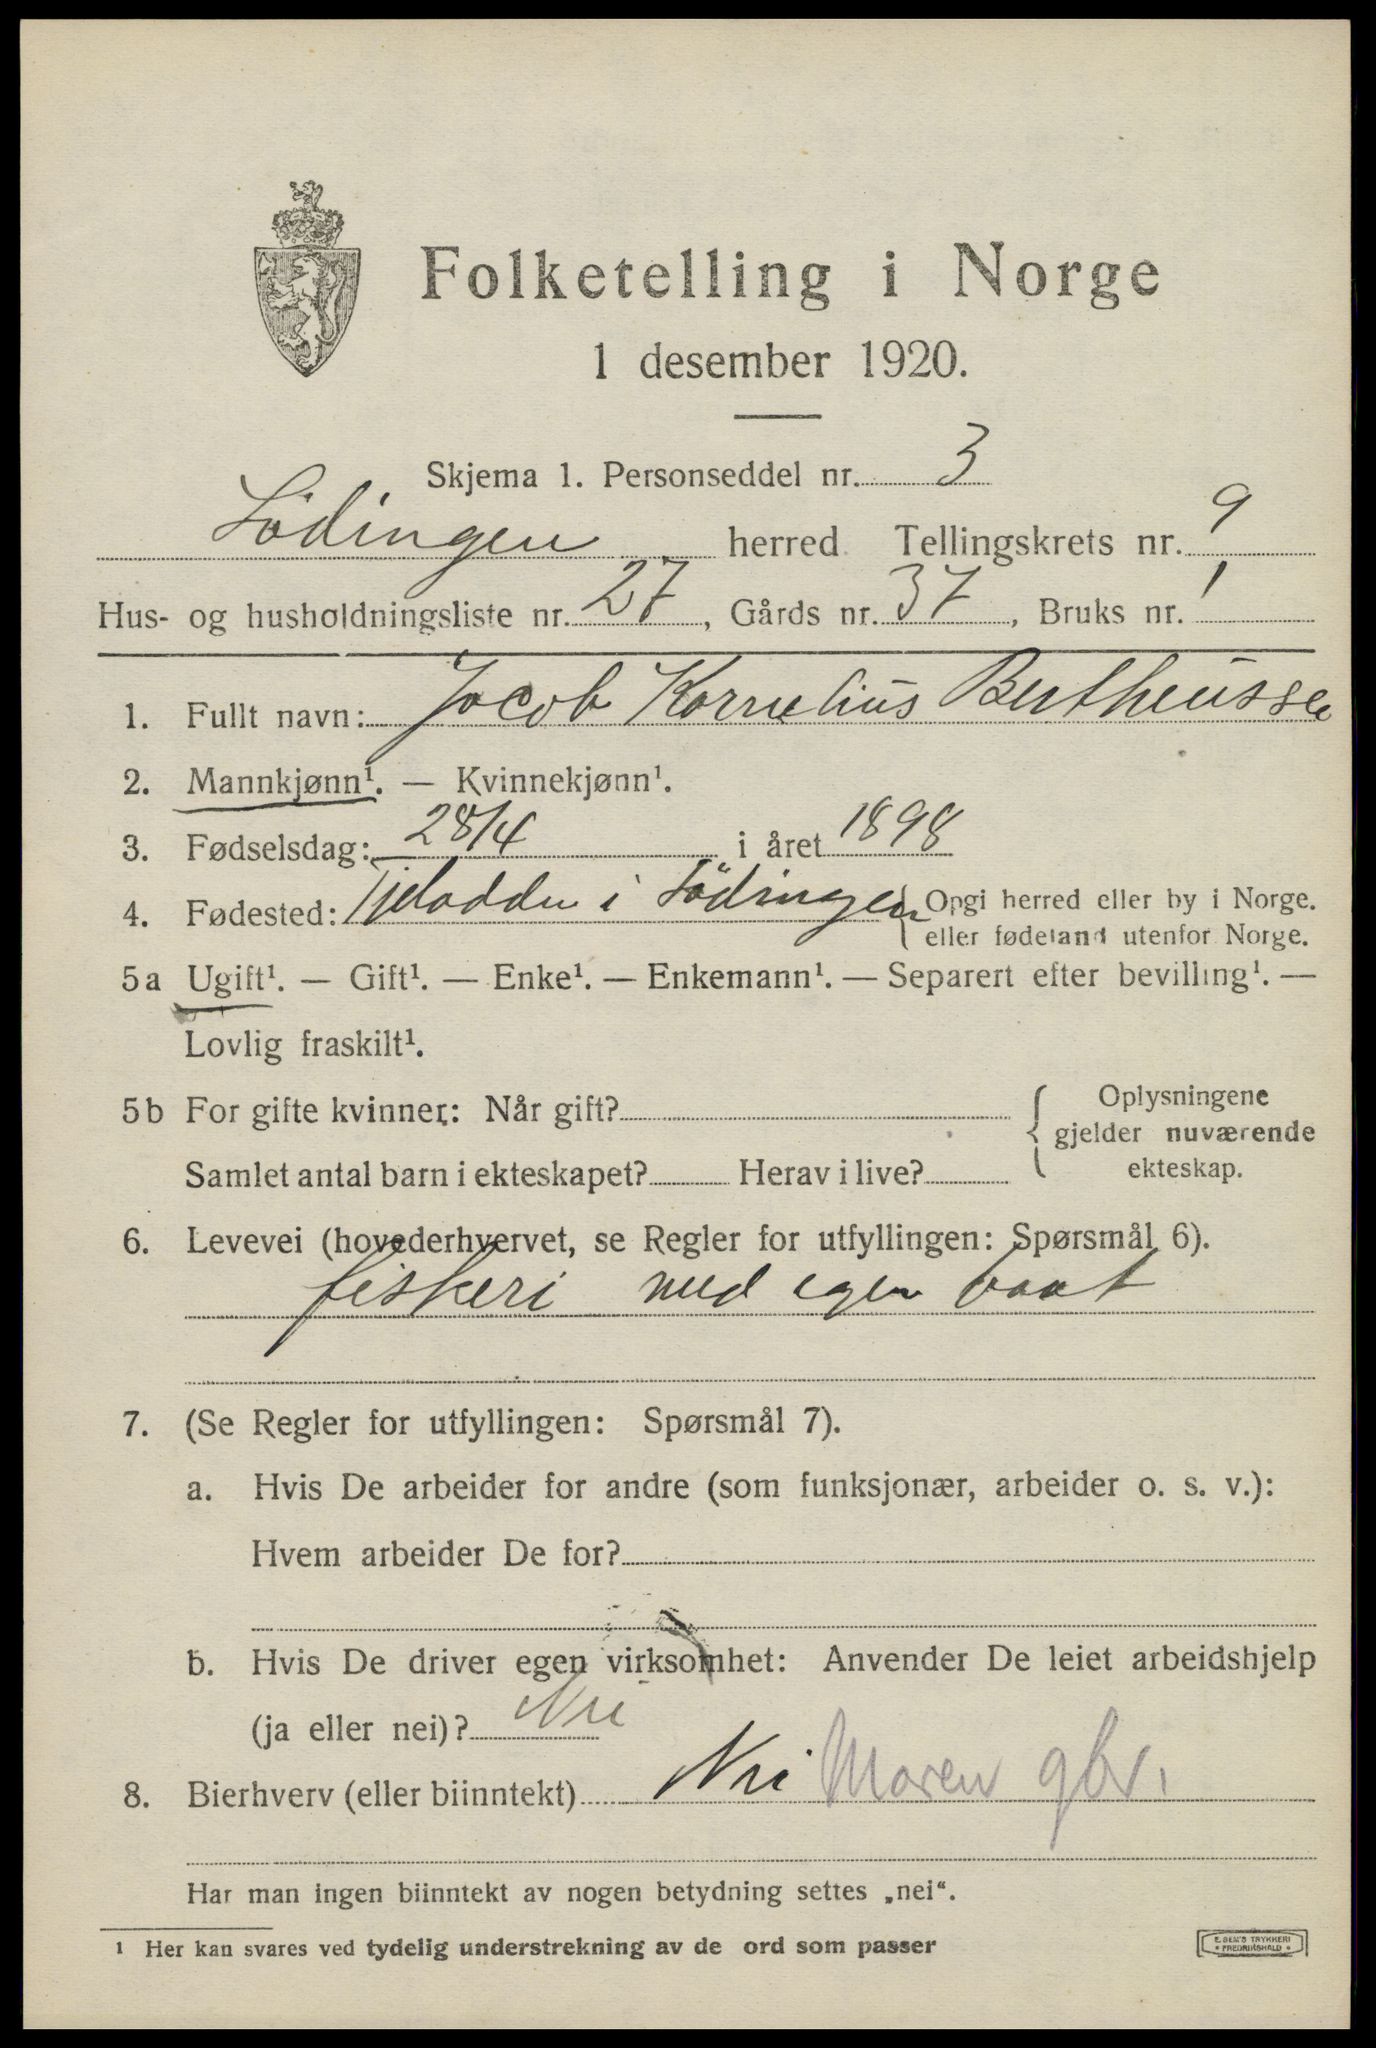 Folketelling i Norge
1 desember 1920.
Skjema 1. Personseddel nr. 3
Lödingen herred Tellingskrets nr. 9
Hus- og husholdningsliste nr. 27, Gårds nr. 37, Bruks nr. 1
1. Fullt navn: Jocob Kornelius Bertheusse
2. Mannkjønn¹. — Kvinnekjønn¹.
3. Fødselsdag: 28/4 i året 1898
4. Fødested: Tjeldodden i Lödingen { Opgi herred eller by i Norge.
eller fødeland utenfor Norge.
5a Ugift¹. — Gift¹. — Enke¹. — Enkemann¹. — Separert efter bevilling¹. —
Lovlig fraskilt¹.
5b For gifte kvinner: Når gift? { Oplysningene
gjelder nuværende
Samlet antal barn i ekteskapet? Herav i live? ekteskap.
6. Levevei (hovederhvervet, se Regler for utfyllingen: Spørsmål 6).
fiskeri med egen baat
7. (Se Regler for utfyllingen: Spørsmål 7).
a. Hvis De arbeider for andre (som funksjonær, arbeider o. s. v.):
Hvem arbeider De for?
b. Hvis De driver egen virksomhet: Anvender De leiet arbeidshjelp
(ja eller nei)? Nei
8. Bierhverv (eller biinntekt) Nei Moren gbr.
Har man ingen biinntekt av nogen betydning settes „nei“.
¹ Her kan svares ved tydelig understrekning av de ord som passer
E. SEM'S TRYKKERI
• FREDRIKSHALD •